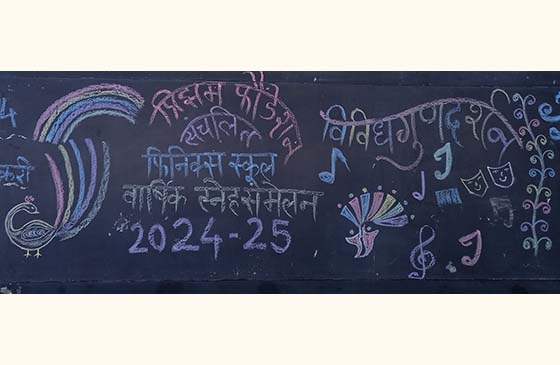 4
करी
प्रिझम फौंडेशन
संचलित
फिनिक्स स्कूल
वार्षिक स्नेहसंमेलन
2024-25
विविधगुणदर्शन